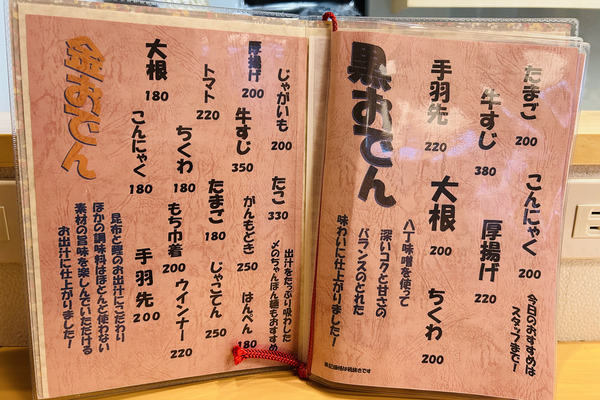 黒おでん
たまご
200
牛すじ
380
手羽先
220
こんにゃく
200
厚揚げ
220
大根
200
ちくわ
200
八丁味噌を使って
深いコクと甘さの
バランスのとれた
味わいに仕上がりました!
今日のおすすめは
スタッフまで!
表記価格は税抜きです
金おでん
じゃがいも
200
厚揚げ
200
トマト
220
大根
180
たこ
330
牛すじ
350
ちくわ
180
こんにゃく
180
がんもとき
250
たまご
180
もち巾着
200
手羽先
200
はんぺん
180
じゃこてん
250
ウインナー
220
出汁をたっぷり吸わした
〆のちゃんぽん麺もおすすめ
昆布と鰹のお出汁にこだわり
ほかの調味料はほとんど使わない
素材の旨味を楽しんでいただける
お出汁に仕上がりました!